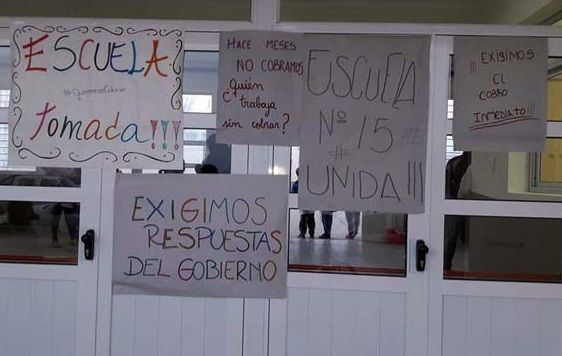 ESCUELA
#QueremosCobrar
Tomada!!!
HACE MESES
NO COBRAMOS
¿quién
trabaja
sin cobrar?
ESCUELA
Nº 15
# #
UNIDA!!!
¡¡¡EXIGIMOS
EL
COBRO
INMEDIATO!!!
EXIGIMOS
RESPUESTAS
DEL GOBIERNO